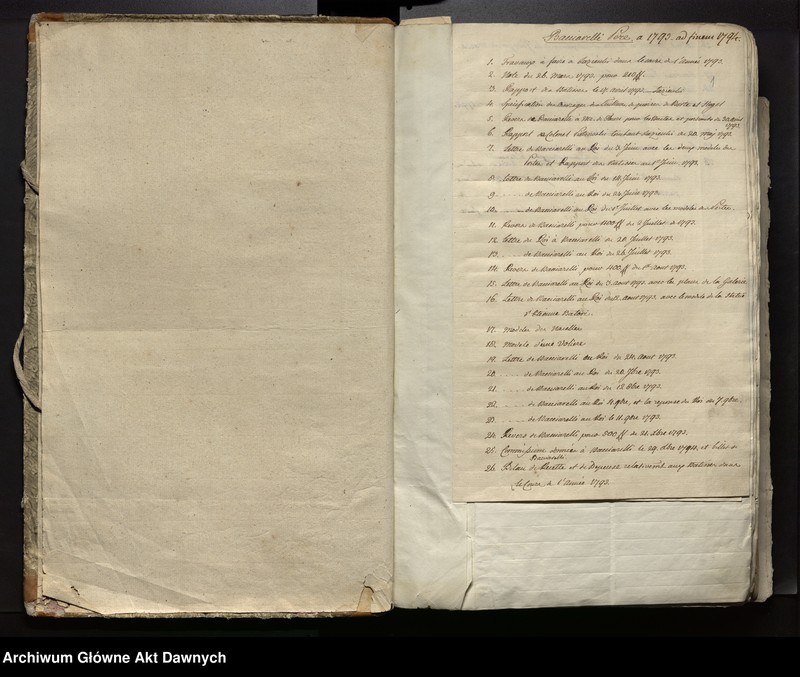 Bacciarelli Père, a 1793. ad finem 1794.
1. Travaux à faire à Lazienki dans le cours de l'année 1793.
2. Note du 26. Mars 1793. pour 210 ff.
3. Rapport du Batiment le 17. aout 1793. Lazienki
4. Specification des
5. Revers de Bacciarelli à pour
1793.
6. Rapport du Colonel touchant Lazienki du 20. May 1793.
7. Lettre de Bacciarelli au Roi du 3 Juin avec les deux modeles de
Poeles et Rapport du Batiment du 1r Juin 1793.
8. Lettre de Bacciarelli au Roi du 18. Juin 1793.
9. ..... de Bacciarelli au Roi du 24 Juin 1793.
10. ..... de Bacciarelli au Roi du 1r Juillet avec les modeles de Poeles.
11. Revers de Bacciarelli pour 1100 ff du 2 Juillet 1793.
12. Lettre du Roi à Bacciarelli du 20. Juillet 1793.
13. .... de Bacciarelli au Roi du 24. Juillet 1793.
14. Revers de Bacciarelli pour 400 ff du 1r aout 1793.
15. Lettre de Bacciarelli au Roi du 3. aout 1793. avec les plans de la Galerie
16. Lettre de Bacciarelli au Roi du aout 1793. avec le modele de la Statue
d'Etienne Batori.
17. Modeles de
18. Modele d'une Voliere
19. Lettre de Bacciarelli au Roi du 24. aout 1793.
20. ..... de Bacciarelli au Roi du 20. 7bre 1793.
21. ..... de Bacciarelli au Roi du 12. 8bre 1793.
22. ..... de Bacciarelli au Roi 4. 9bre, et la reponse du Roi du 7. 9bre
23. ..... de Bacciarelli au Roi le 11. 9bre 1793.
24. Revers de Bacciarelli pour 200 ff du 21. Xbre 1793.
25. Commission donnée à Bacciarelli le 29. Xbre 1794. et billet de
Bacciarelli
26. Bilan de Recette et de Depense relativement aux Batimens dans
le Cours de l'année 1793.
1
Archiwum Główne Akt Dawnych